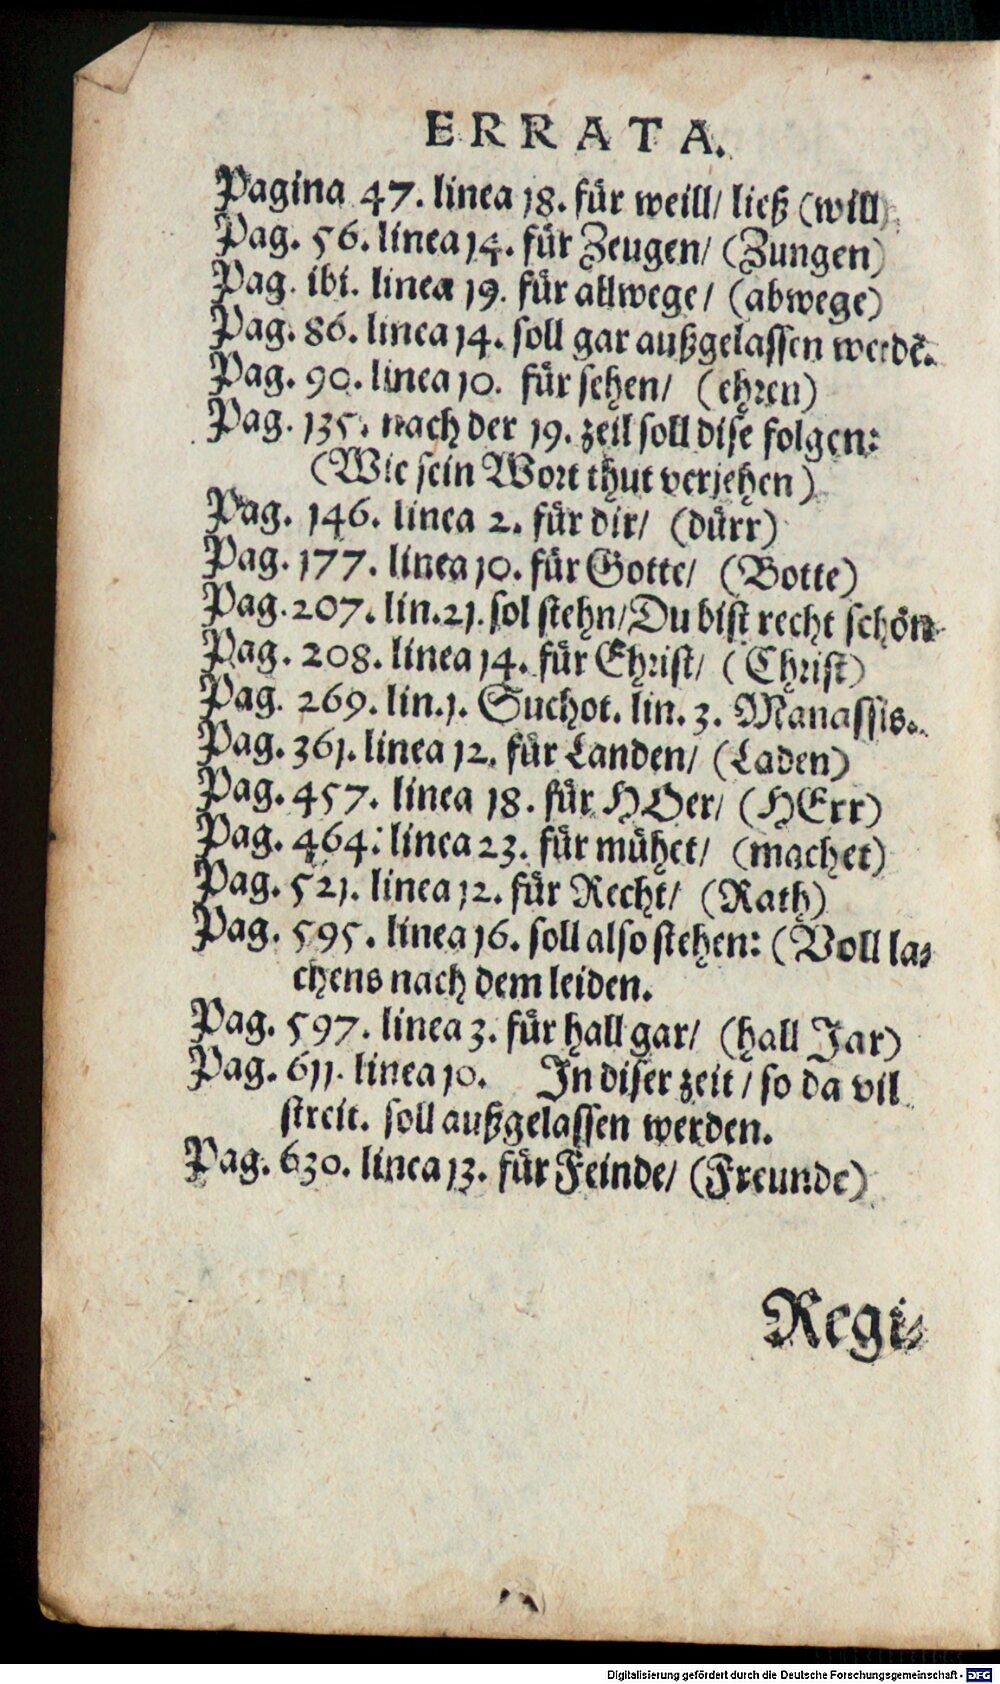 ERRATA.
Pagina 47. linea 18. für weill/ ließ (will)
Pag. 56. linea 14. für Zeugen/ (Zungen)
Pag. ibi. linea 19. für allwege/ (abwege)
Pag. 86. linea 14. soll gar außgelassen werdē.
Pag. 90. linea 10. für sehen/ (ehren)
Pag. 135. nach der 19. zeil soll dise folgen:
(Wie sein Wort thut verjehen)
Pag. 146. linea 2. für dir/ (dürr)
Pag. 177. linea 10. für Gotte/ (Botte)
Pag. 207. lin. 21. sol stehn/ Du bist recht schön
Pag. 208. linea 14. für Ehrist/ (Christ)
Pag. 269. lin. 1. Suchot. lin. 3. Manassis.
Pag. 361. linea 12. für Landen/ (Laden)
Pag. 457. linea 18. für HOer/ (HErr)
Pag. 464: linea 23. für mühet/ (machet)
Pag. 521. linea 12. für Recht/ (Rath)
Pag. 595. linea 16. soll also stehen: (Voll la-
chens nach dem leiden.
Pag. 597. linea 3. für hall gar/ (hall Jar)
Pag. 611. linea 10. In diser zeit/ so da vil
streit. soll außgelassen werden.
Pag. 630. linea 13. für Feinde/ (Freunde)
Regi-
Digitalisierung gefördert durch die Deutsche Forschungsgemeinschaft - DFG